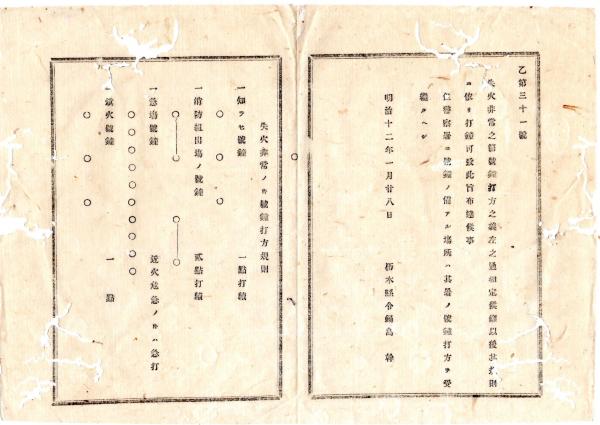 乙第三十一號
失火非常之節號鐘打方之義左之通相定候條以後其規則
ニ依リ打鐘可致此旨布達候事
但警察署ニ號鐘ノ備アル場所ハ其署ノ號鐘打方ヲ受
繼ルヘシ
明治十二年一月廿八日　栃木縣令鍋島　幹
失火非常ノ節號鐘打方規則
一知ラセ號鐘　一點打續
○　○　○
一消防組出場ノ號鐘　貳點打續
○――○　○――○
一急塲號鐘　近火危急ノ節ハ急打
○○○○○○○○○○
一鎭火號鐘　一　點
○　○　○